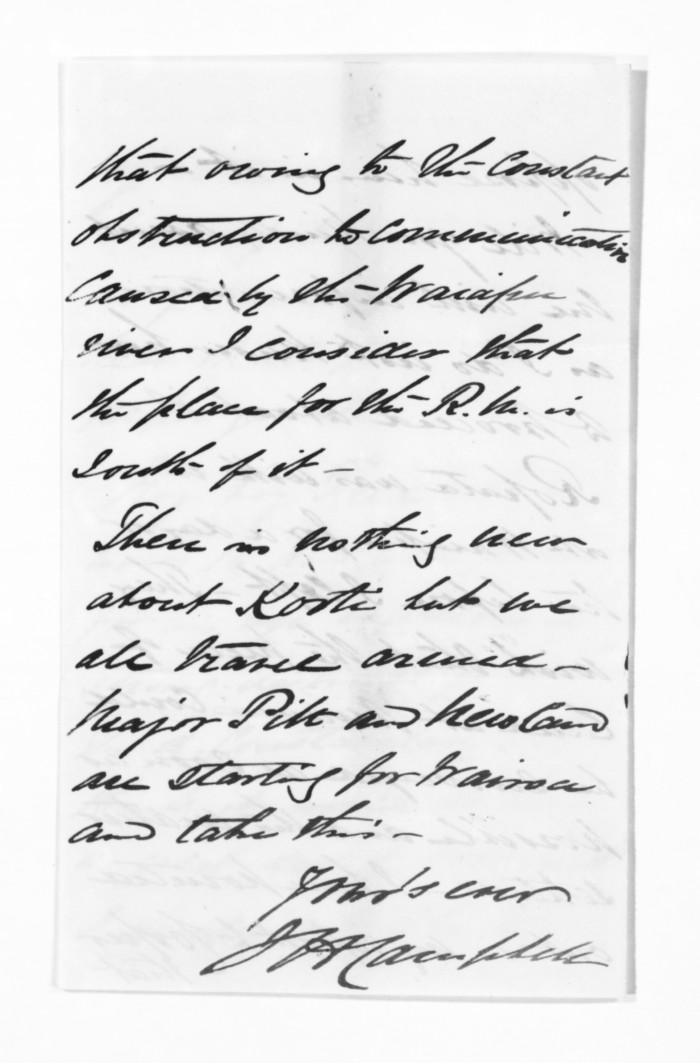 that owing to the constant
obstruction to communication
caused by the Waiapu
river I consider that
the place for the R.M. is
south of it -
There is nothing new
about Kooti but we
all travel armed -
Major Pitt and Newland
are starting for Wairoa
and take this -
Your's ever
J H Campbell